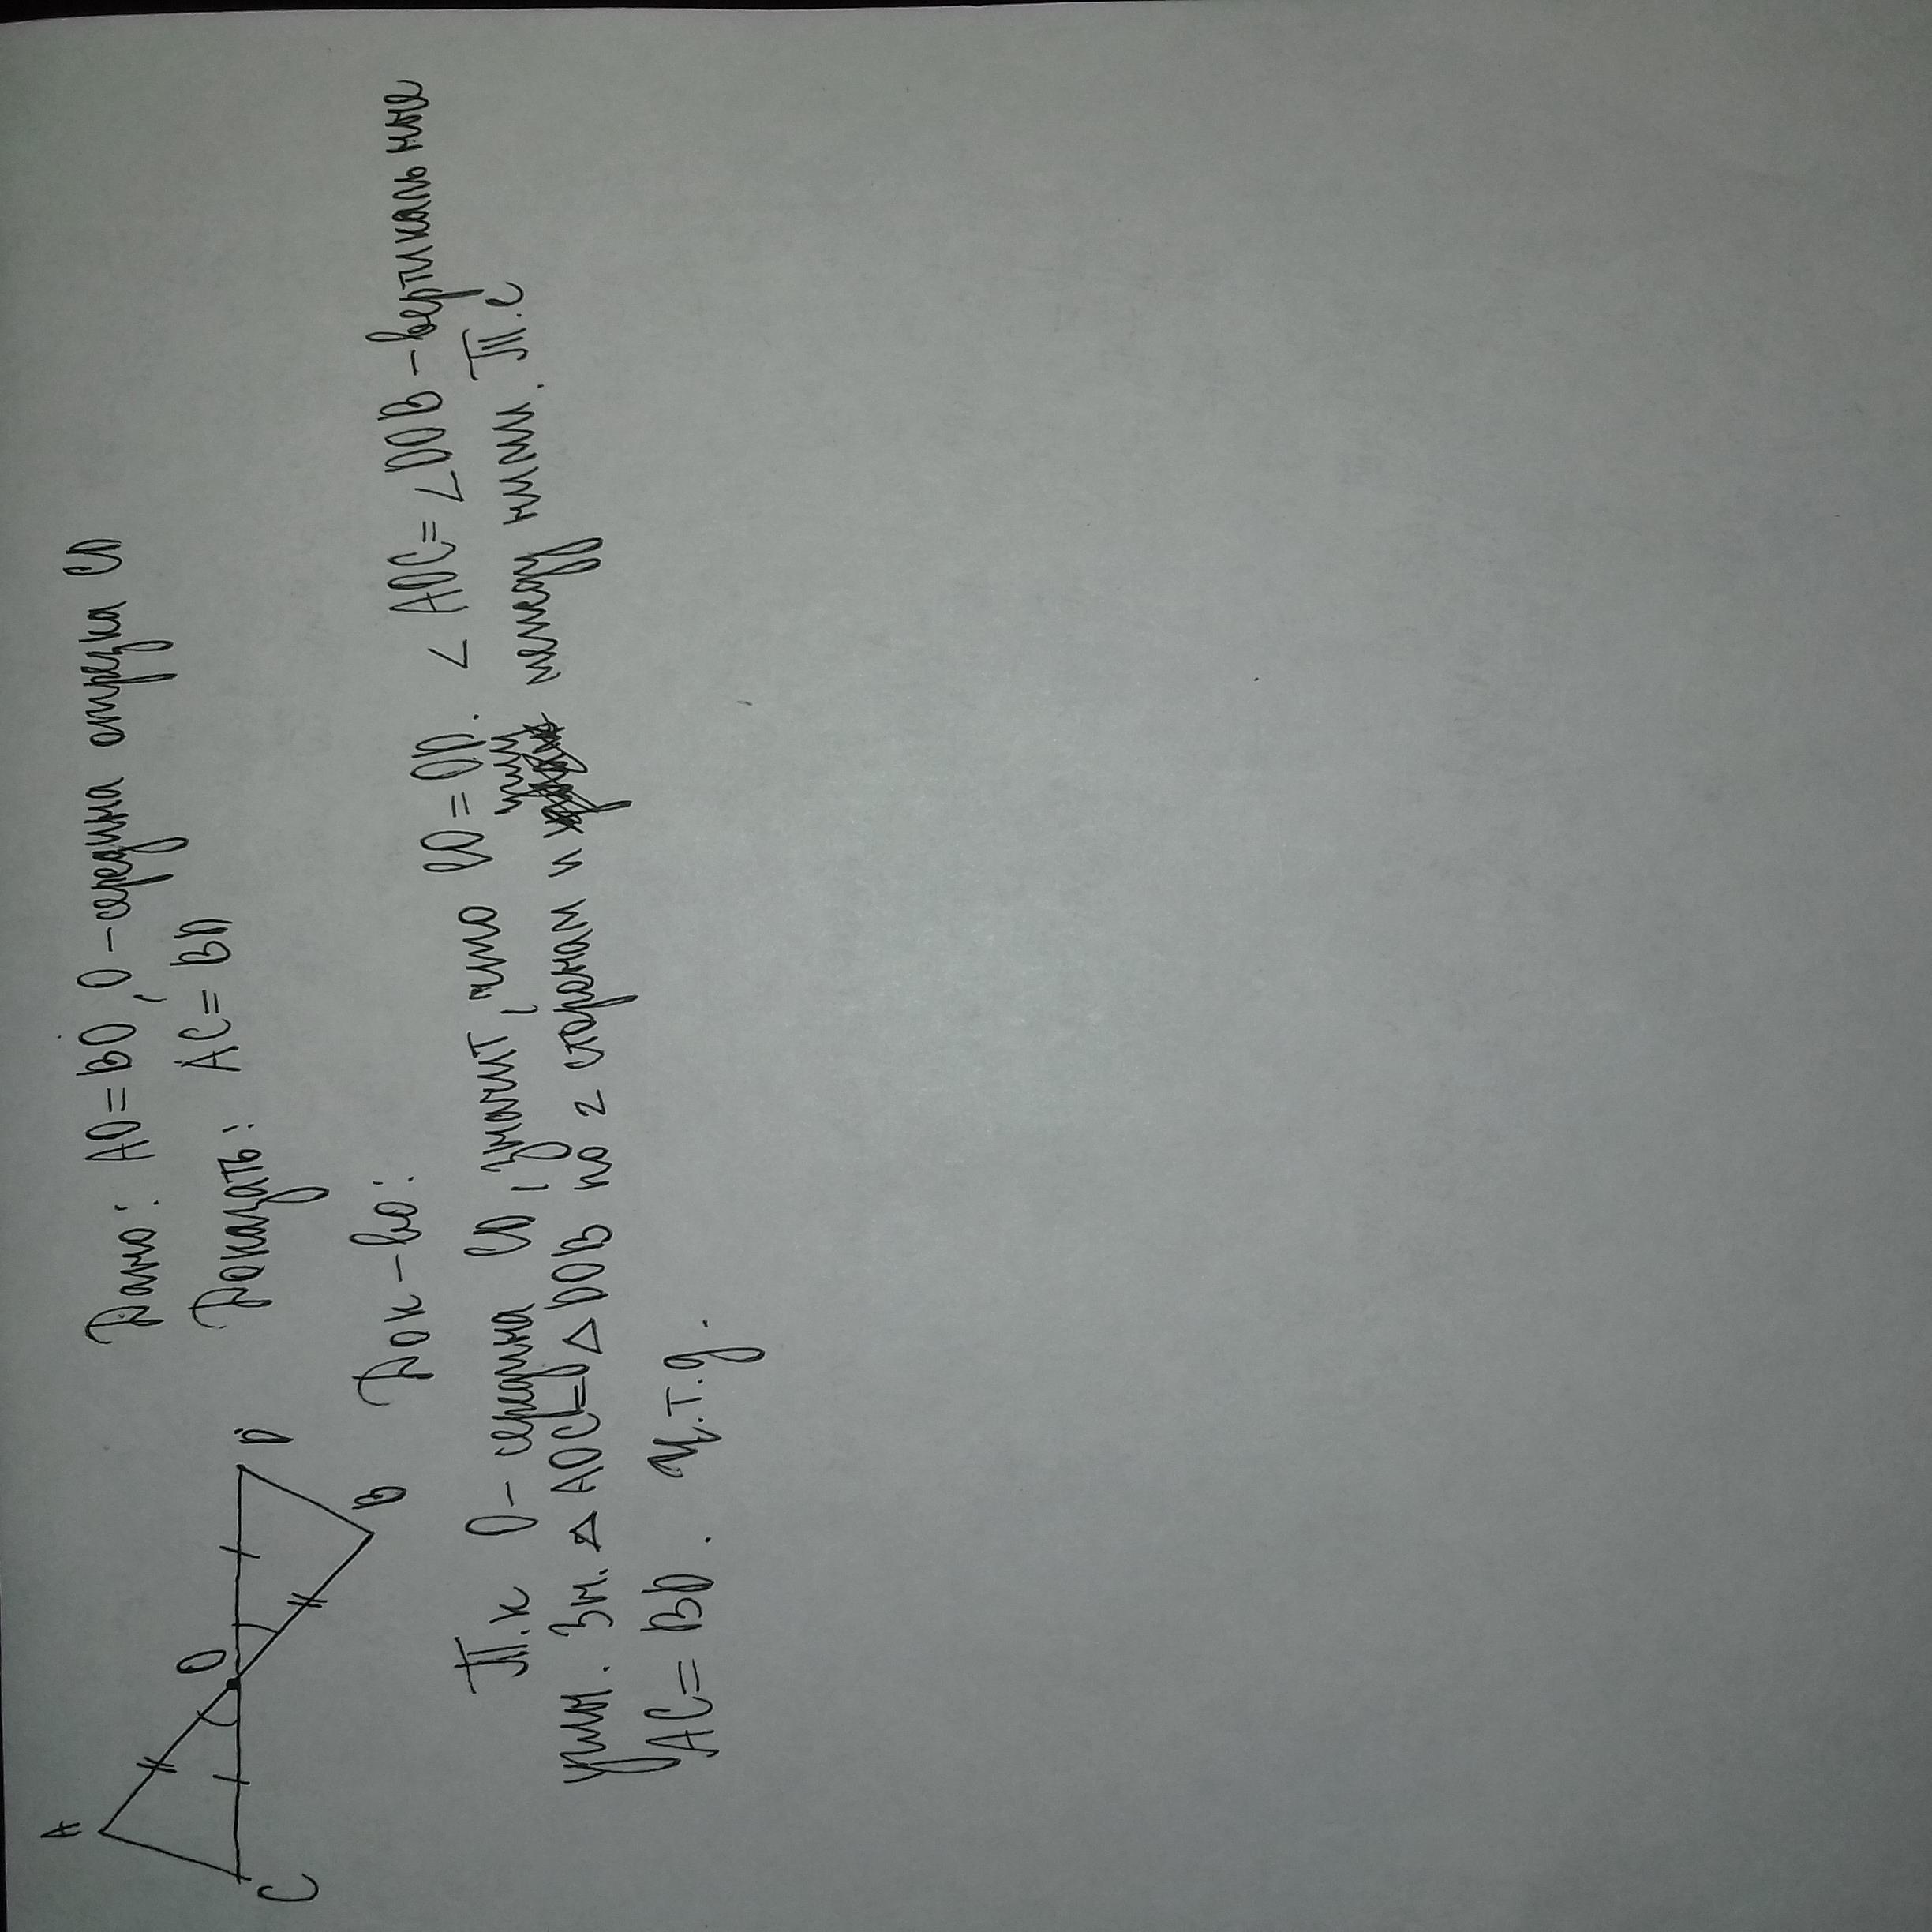 A
O
D
C
B
Дано: AO = BO, O - середина отрезка CD
Доказать: AC = BD
Док-во:
Т.к O - середина CD, значит, что CO = OD. ∠ AOC = ∠DOB - вертикальные
углы. Зн. △ AOC = △ DOB по 2 сторонам и между ними. Т.е
AC = BD. Ч.т.д.